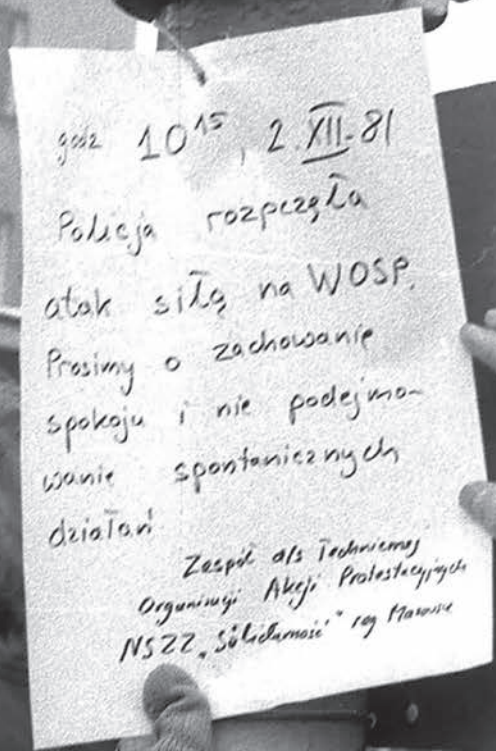 godz 10¹⁵, 2.XII-81
Policja rozpczęła
atak siłą na WOSP.
Prosimy o zachowanie
spokoju i nie podejmo-
wanie spontanicznych
działań
Zespół d/s Technicznej
Organizacji Akcji Protestacyjnych
NSZZ „Solidarność" reg Mazowsze